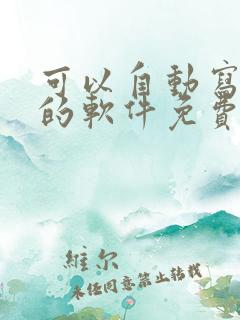 可以自動寫
的軟件免費
維尔
未任同意禁止转载